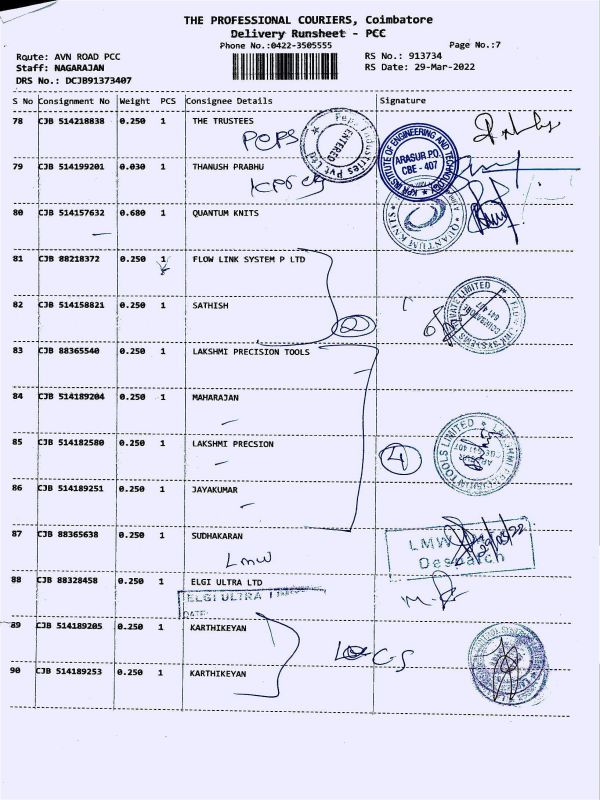 THE PROFESSIONAL COURIERS, Coimbatore
Delivery Runsheet - PCC
Phone No.:0422-3505555
Page No.:7
Route: AVN ROAD PCC
RS No.: 913734
Staff: NAGARAJAN
RS Date: 29-Mar-2022
DRS No.: DCJB91373407
S No Consignment No Weight PCS Consignee Details Signature
78 CJB 514218838 0.250 1 THE TRUSTEES
PEPS
ENTERED
KPR INSTITUTE OF ENGINEERING AND TECHNOLOGY
ARASUR PO.
CBE - 407
79 CJB 514199201 0.030 1 THANUSH PRABHU
80 CJB 514157632 0.680 1 QUANTUM KNITS
QUANTUM KNITS
81 CJB 88218372 0.250 1 FLOW LINK SYSTEM P LTD
82 CJB 514158821 0.250 1 SATHISH
PRIVATE LIMITED
COIMBATORE
641 407
83 CJB 88365540 0.250 1 LAKSHMI PRECISION TOOLS
84 CJB 514189204 0.250 1 MAHARAJAN
85 CJB 514182580 0.250 1 LAKSHMI PRECSION
4
LAKSHMI PRECISION TOOLS LIMITED
86 CJB 514189251 0.250 1 JAYAKUMAR
87 CJB 88365638 0.250 1 SUDHAKARAN
Lmw
LMW
Despatch
29/03/22
88 CJB 88328458 0.250 1 ELGI ULTRA LTD
ELGI ULTRA
DATE:
89 CJB 514189205 0.250 1 KARTHIKEYAN
90 CJB 514189253 0.250 1 KARTHIKEYAN